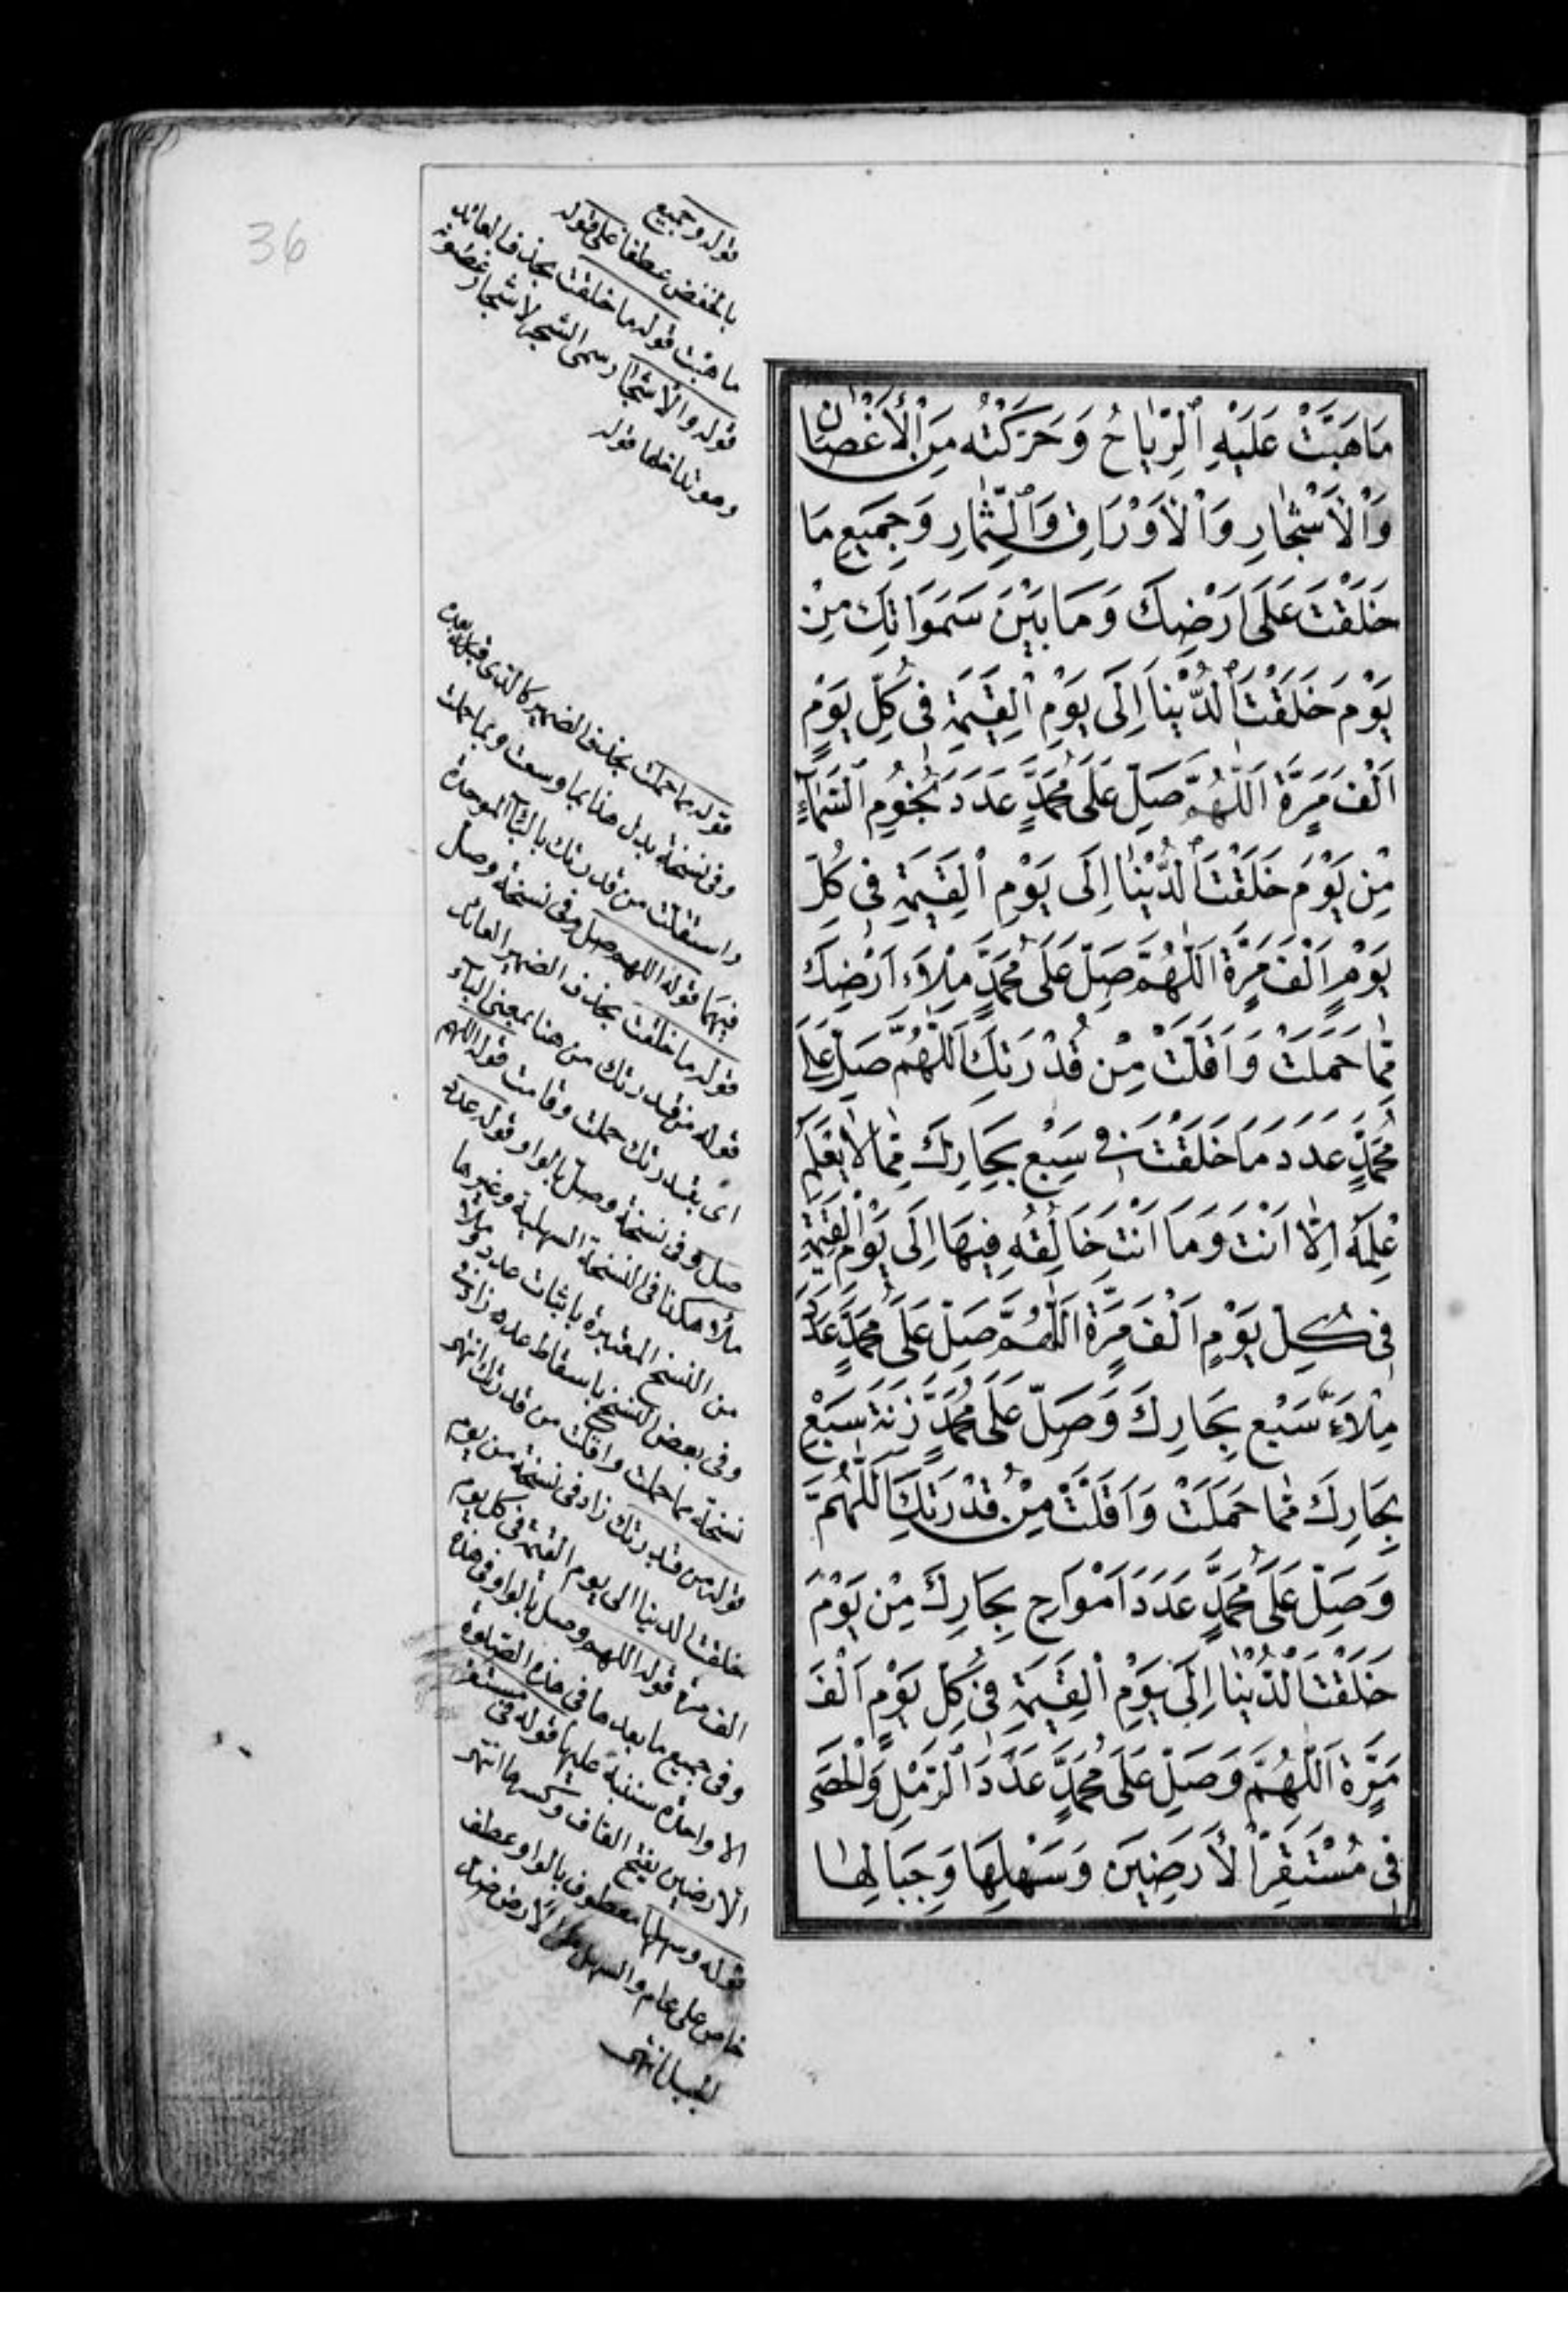 36
مَا هَبَّتْ عَلَيْهِ ٱلرِّيَاحُ وَحَرَكَتْهُ مِنَ ٱلْأَغْصَانِ
وَٱلْأَشْجَارِ وَٱلْأَوْرَاقِ وَٱلثِّمَارِ وَجَمِيعِ مَا
خَلَقْتَ عَلَى اَرْضِكَ وَمَا بَيْنَ سَمَوَاتِكَ مِنْ
يَوْمَ خَلَقْتَ ٱلدُّنْيَا اِلَى يَوْمِ ٱلْقِيَمَةِ فِى كُلِّ يَوْمٍ
اَلْفَ مَرَّةٍ اَللّٰهُمَّ صَلِّ عَلَى مُحَمَّدٍ عَدَدَ نُجُومِ ٱلسَّمَآءِ
مِنْ يَوْمَ خَلَقْتَ ٱلدُّنْيَا اِلَى يَوْمِ ٱلْقِيَمَةِ فِى كُلِّ
يَوْمٍ اَلْفَ مَرَّةٍ اَللّٰهُمَّ صَلِّ عَلَى مُحَمَّدٍ مِلْاَءَ اَرْضِكَ
مِمَّا حَمَلَتْ وَاَقَلَتْ مِنْ قُدْرَتِكَ اَللّٰهُمَّ صَلِّ عَلَى
مُحَمَّدٍ عَدَدَ مَا خَلَقْتَ فِى سَبْعِ بِحَارِكَ مِمَّا لَا يَعْلَمُ
عِلْمَهُ اِلَّا اَنْتَ وَمَا اَنْتَ خَالِقُهُ فِيهَا اِلَى يَوْمِ ٱلْقِيَمَةِ
فِى كُلِّ يَوْمٍ اَلْفَ مَرَّةٍ اَللّٰهُمَّ صَلِّ عَلَى مُحَمَّدٍ عَدَدَ
مِلْاَءَ سَبْعِ بِحَارِكَ وَصَلِّ عَلَى مُحَمَّدٍ زِنَةَ سَبْعِ
بِحَارِكَ مِمَّا حَمَلَتْ وَاَقَلَّتْ مِنْ قُدْرَتِكَ اَللّٰهُمَّ
وَصَلِّ عَلَى مُحَمَّدٍ عَدَدَ اَمْوَاجِ بِحَارِكَ مِنْ يَوْمَ
خَلَقْتَ ٱلدُّنْيَا اِلَى يَوْمِ ٱلْقِيَمَةِ فِى كُلِّ يَوْمٍ اَلْفَ
مَرَّةٍ اَللّٰهُمَّ وَصَلِّ عَلَى مُحَمَّدٍ عَدَدَ ٱلرَّمْلِ وَٱلْحَصَى
فِى مُسْتَقَرِّ ٱلْأَرَضِينَ وَسَهْلِهَا وَجِبَالِهَا
قوله وجميع
بالخفض عطفا على قوله
ما هبت قوله ما خلقت بحذف العائد
قوله والاشجار سمى الشجر لاشتجار غصونه
وهو تداخلها قوله
قوله مما حملت بحذف الضمير كالذى قبله وبعده
وفى نسخة بدل هذا بما وسعت وبما حملت
واستقلت من قدرتك بالباء الموحدة
فيهما قوله اللهم صل وفى نسخة وصل
قوله ما خلقت بحذف الضمير العائد
قوله من قدرتك من هنا بمعنى الباء
اى بقدرتك حملت وقامت قوله اللهم
صل وفى نسخة وصل بالواو قوله عدد
ملأ هكذا فى النسخة السهلية وغيرها
من النسخ المعتبرة باثبات عدد وملأ
وفى بعض النسخ باسقاط عدد زاد فى
نسخة مما حملت واقلت من قدرتك انتهى
قوله من قدرتك زاد فى نسخة من يوم
خلقت الدنيا الى يوم القيمة فى كل يوم
الف مرة قوله اللهم وصل بالواو فى هذه
وفى جميع ما بعدها فى هذه الصلوة
الا واحدة سننبه عليها قوله فى مستقر
الارضين بفتح القاف وكسرها انتهى
قوله وسهلها معطوف بالواو عطف
خاص على عام والسهل من الارض ضد
الجبل انتهى